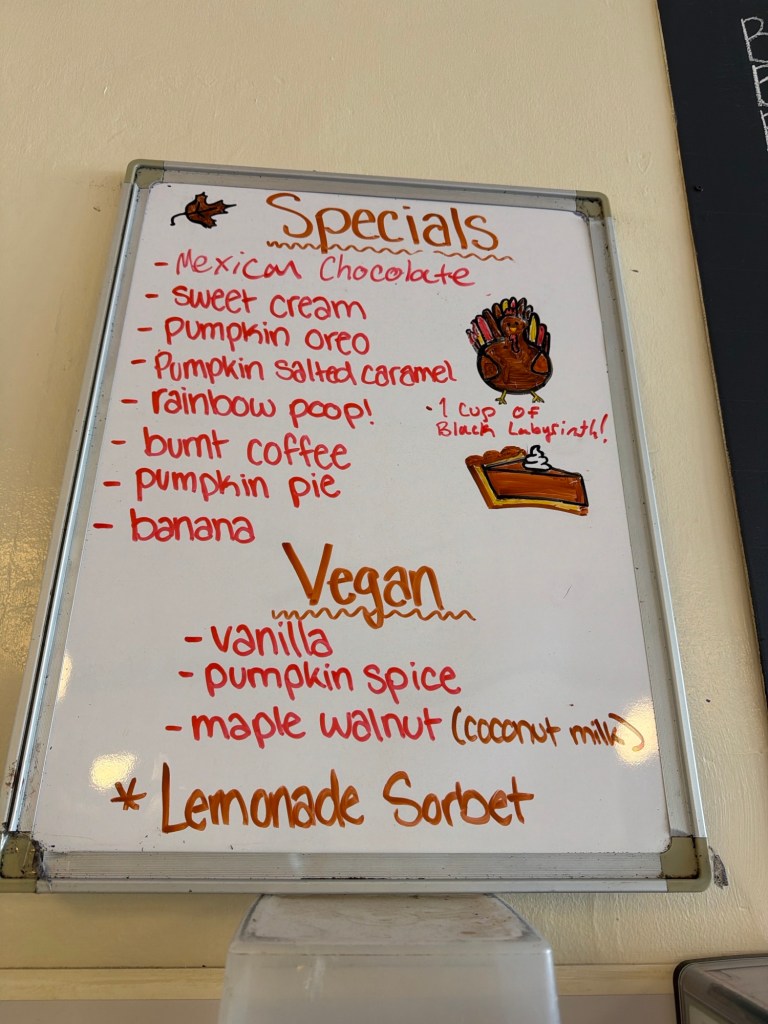 Specials
- Mexican Chocolate
- sweet cream
- pumpkin oreo
- Pumpkin salted caramel
- rainbow poop!
· 1 Cup of
Black Labyrinth!
- burnt coffee
- pumpkin pie
- banana
Vegan
- vanilla
- pumpkin spice
- maple walnut (coconut milk)
* Lemonade Sorbet